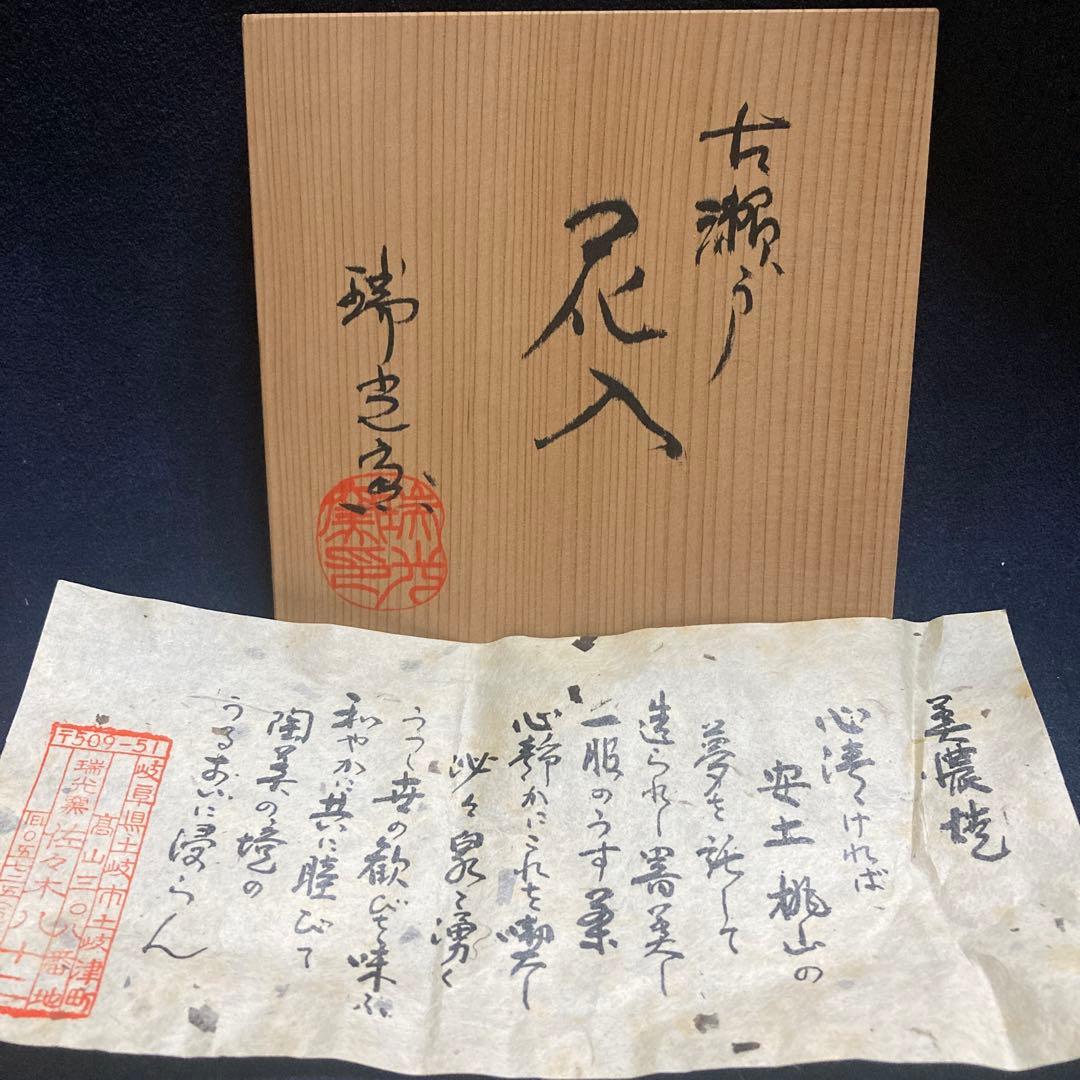 古瀬戸
花入
瑞光窯
瑞光窯印
美濃焼
心清くければ、
安土桃山の
夢を託して
造られし器美し
一服のうす茶
心静かにこれを喫し
沁々泉と湧く
うつし世の歓びを味ふ
和やかに共に睦びて
陶美の境の
うるおいに浸らん
〒509-51
岐阜県土岐市土岐津町
高山三〇八番地
瑞光窯 佐々木